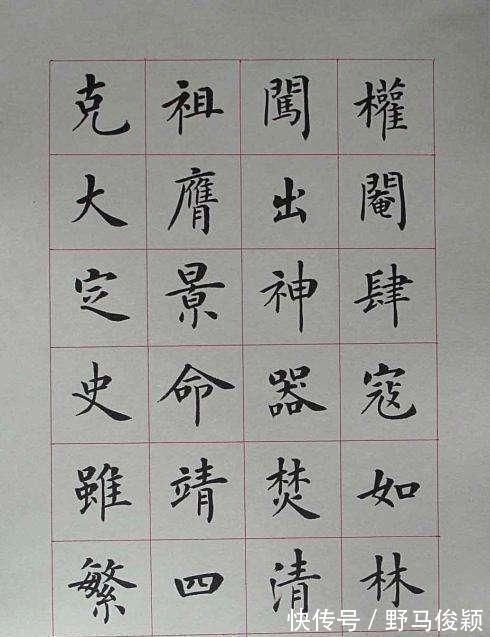 權閹肆寇如林
闖出神器焚清
祖膺景命靖四
克大定史雖繁
快传号 / 野马俊颖